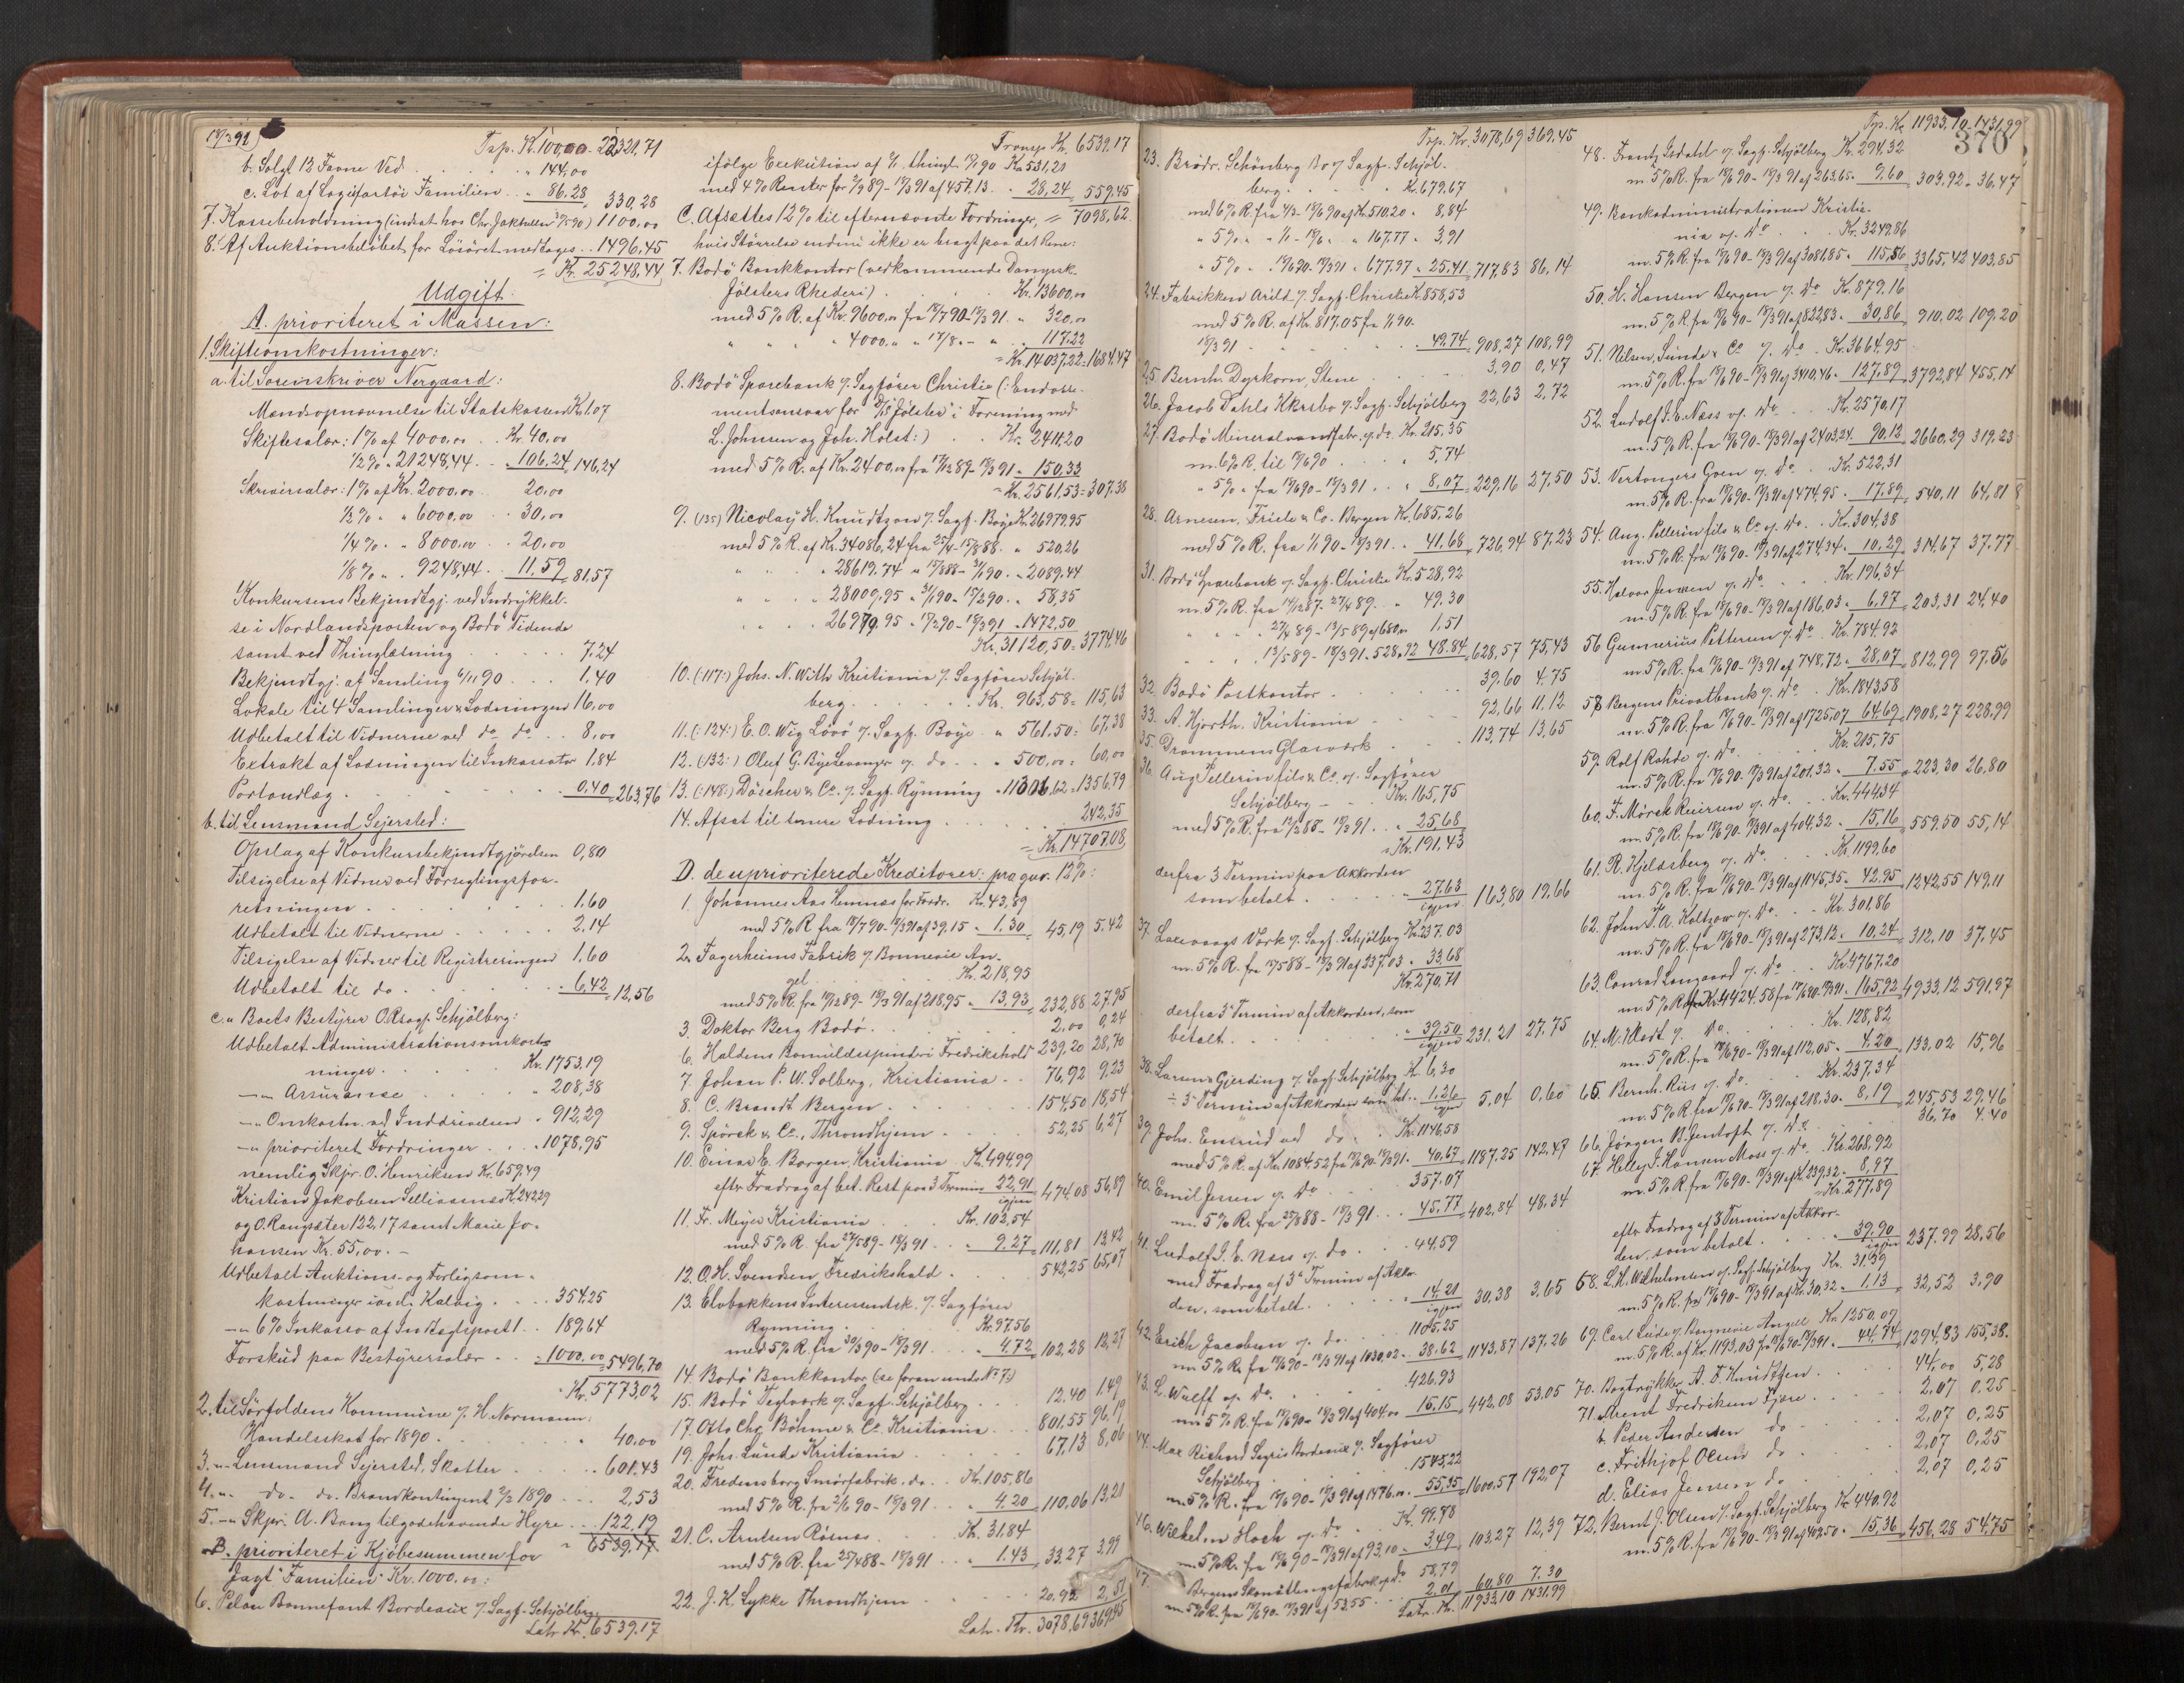 18/3 91
Tsp. Kr. 1000,00 - 22321,71
b. Solgt 12 Favne Ved . . . " 144,00
c. Lot af Logisfartöi Familien . " 86.28 = 330,28
7. Kassebeholdning (indsat hos Chr. Jakhelln) 1100,00
8. Af Auktionsbelöbet for Lösöret medtages . . 1496,45
= Kr. 25248,44
Udgift.
A. prioriteret i Massen:
1. Skifteomkostninger:
a. til Sorenskriver Nergaard:
Mændsopnævnelse til Statskassen Kr. 1.07
Skiftesalær: 1% af 4000,00 . . Kr. 40,00
1/2% " 21248,44 . . 106,24 = 146,24
Skriversalær: 1% af Kr. 2000,00 20,00
1/2% " " 6000,00 . . 30,00
1/4% " " 8000,00 . . 20,00
1/8% " . 9248,44 . . 11,59 = 81,57
Konkursens Bekjendtgj. ved Indrykkel-
se i Nordlandsposten og Bodö Tidende
samt ved Thinglæsning . . . 7.24
Bekjendtgj. af Samling 6/11 90 . . . 1,40
Lokale til 4 Samlinger & Lodninger 16,00
Udbetalt til Vidnerne ved do do . . 8,00
Extrakt af Lodningen til Inkassator 1,84
Portoudlæg . . . 0.40 = 263,76
b. til Lensmand Sejersted:
Opslag af Konkursbekjendtgjörelsen 0,80
Tilsigelse af Vidner ved Forseglingsfor-
retningen . . . 1.60
Udbetalt til Vidnerne . . . 2.14
Tilsigelse af Vidner til Registreringen 1.60
Udbetalt til do . . . 6,42 = 12,56
c. " Boets Bestyrer O.R.sagf. Schjölberg:
Udbetalt Administrationsomkost-
ninger . . . Kr. 1753.19
—"— Assurance . . . " 208,38
—"— Omkostn. ved Inddrivelsen " 912,29
—" prioriteret Fordringer . . . 1078,95
nemlig Skpr. O. Henriksen Kr. 659,49
Kristian Jakobsen Selliaasnes Kr. 242,29
og O. Rangsæter 122,17 samt Marie Jo-
hansen Kr. 55,00. —
Udbetalt Auktions- og Forligsom-
kostninger Kalvig . . . 354,25
—"— 6% Inkasso af Indtægtspost 1 . . 189,64
Forskud paa Bestyrersalær . . 1000,00 = 5496,70
Kr. 5773,02
2. til Sörfoldens Kommune v. H. Normann:
Handelsskat for 1890 . . . " 40,00
3. —"— Lensmand Sejersted, Skatter . . . 601.43
4. —"— do. do. Brandkontingent 1890 . . . 2,53
5. —"— Skpr. A. Bang tilgodehavende Hyre . . 122,19
" 6539.17
B. prioriteret i Kjöbesummen for
Jagt "Familien" Kr. 1000.00:
6. Pelou Bonnefant Bordeaux v. Sagf. Schjölberg
Latr. Kr. 6539.17
Transp. Kr. 6539.17
ifölge Exekution af Kr. 531,21
med 4% Renter fra 2/9 89 - 18/3 91 af 457.13 . . 28,24 = 559.45
= 7098,62
C. Afsættes 12% til efternævnte Fordringer,
hvis Störrelse endnu ikke er bragt paa det Rene:
7. Bodö Bankkontor (vedkommende Dampsk.
Jölsters Rhederi) . . . Kr. 13600,00
med 5% R. af Kr. 9600,00 fra 18/7 90 - 18/3 91 " 320,00
" " " 4000,00 " 17/8 " - " " 117.22
= Kr. 14037,22 = 1684.47
8. Bodö Sparebank v. Sagförer Christie (: Endosse-
mentsansvar for D/S "Jölster" i Forening med
L. Johnsen og Joh. Holst:) . . Kr. 2411.20
med 5% R. af Kr. 2400,00 fra 17/12 89 - 18/3 91 " 150,33
= Kr. 2561,53 = 307,38
9. (135) Nicolay H. Knudtzon v. Sagf. Böye Kr. 26979.95
med 5% R. af Kr. 34086,24 fra 25/4 - 15/8 88 . " 520,26
" " " 28619.74 " 15/8 88 - 31/1 90 . " 2089.44
" " " 28009,95 " 31/1 90 - 17/2 90 . " 58,35
" " " 26979.95 " 17/2 90 - 18/3 91 " 1472,50
Kr. 31120,50 = 3774,46
10. (:117:) Johs. N. With Kristiania v. Sagförer Schjöl-
berg . . . Kr. 963,58 = 115,63
11. (:124:) E. O. Wig Lövö v. Sagf. Böye " 561.50 = 67.38
12. (132:) Oluf G. Bye Levanger v. do . . " 500,00 = 60,00
13. (:148:) Döscher & Co. v. Sagf. Rynning " 11306,62 = 1356,79
14. Afsat til senere Lodning . . . 242,35
= Kr. 14707,08
D. de uprioriterede Kreditorer: præqver. 12%:
1. Johannes Aas Hemnæs for Fredr. Kr. 43,89
med 5% R. fra 18/7 90 - 18/3 91 af 39.15 " 1.30 = 45,19 5.42
2. Fagerheims Fabrik v. Bonnevie An-
gel . . . Kr. 218,95
med 5% R. fra 12/12 89 - 18/3 91 af 218,95 " 13,93 = 232,88 27,95
3. Doktor Berg Bodö . . . 2,00 0,24
6. Haldens Bomuldsspinderi Fredrikshald 239,20 28,70
7. Johan P. W. Solberg, Kristiania . . 76,92 9,23
8. C. Brandt Bergen . . . 154,50 18,54
9. Spörck & Co., Throndhjem . . . 52,25 6,27
10. Einar E. Borgen, Kristiania Kr. 494,99
efter Fradrag af bet. Rest paa 3 Termin 22,91 igjen 474,08 56,89
11. Fr. Meyer Kristiania . . Kr. 102,54
med 5% R. fra 27/5 89 - 18/3 91 . . 9.27 = 111,81 13,42
12. O. H. Svendsen, Fredrikshald . . . 542,25 65,07
13. Elvebakkens Interessentsk. v. Sagförer
Rynning . . . Kr. 97.56
med 5% R. fra 30/3 90 - 18/3 91 . . . " 4,72 = 102,28 12,27
14. Bodö Bankkontor (se foran under No 7:)
15. Bodö Teglverk v. Sagf. Schjölberg . . . 12.40 1.49
17. Otto Chr. Böhme & Co. Kristiania . . . 801.55 96,19
19. Johs. Lunde Kristiania . . . 67.13 8,06
20. Fredensborg Smörfabrik, do. . Kr. 105,86
med 5% R. fra 2/6 90 - 18/3 91 . . . " 4.20 = 110,06 13,21
21. C. Arntsen Rösnæs . . Kr. 31,84
med 5% R. fra 25/4 88 - 18/3 91 . . . " 1.43 = 33.27 3,99
22. J. H. Lykke Throndhjem . . . 20,92 2,51
Latr. Kr. 3078,69 369,45
Tsp. Kr. 3078,69 369.45
23. Brödr. Schönberg Bo v. Sagf. Schjöl-
berg . . . Kr. 679.67
med 6% R. fra 4/3 - 18/6 90 af Kr. 510.20 " 8,84
" 5% " " - 18/6 " " 167.77 " 3,91
" 5% " " 18/6 90 - 18/3 91 " 677,97 " 25.41 = 717,83 86,14
24. Fabrikken Arild v. Sagf. Christie Kr. 858,53
med 5% R. af Kr. 817.05 fra 1/1 90 -
18/3 91 . . . 49,74 = 908,27 108,99
25. Bernh. Dyrkorn, Stene . . . 3.90 0,47
26. Jacob Dahls Ekrsbo v. Sagf. Schjölberg 22,63 2.72
27. Bodö Mineralvandfabr. v. do. Kr. 215,35
m. 6% R. til 18/6 90 . . . " 5,74
" 5% " fra 18/6 90 - 18/3 91 . . " 8,07 = 229,16 27,50
28. Arnesen, Friele & Co. Bergen Kr. 685,26
med 5% R. fra 1/1 90 - 18/3 91 . . " 41,68 = 726,94 87.23
31. Bodö Sparebank v. Sagf. Christie Kr. 528,92
m. 5% R. fra 14/12 87 - 27/4 89 . . " 49.30
" " " 27/4 89 - 13/5 89 af 680,00 1,51
" " " 13/5 89 - 18/3 91 " 528,92 48.84 = 628,57 75,43
32. Bodö Postkontor . . . 39.60 4.75
33. A. Hjorth. Kristiania . . . 92,66 11.12
35. Drammens Glasværk . . . 113,74 13,65
36. Aug. Pellerin fils & Co. v. Sagförer
Schjölberg — . . Kr. 165,75
med 5% R. fra 12/2 88 - 18/3 91 . . " 25,68
= Kr. 191.43
derfra 3 Termin paa Akkorden
som betalt . . . " 27.63 igjen 163,80 19,66
37. Laxevaags Værk v. Sagf. Schjölberg Kr. 237.03
m. 5% R. fra 13/5 88 - 18/3 91 af 237.03 " 33,68
Kr. 270,71
derfra 3' Termin af Akkorden, som
betalt . . . " 39,50 igjen 231,21 27.75
38. Laurens Gjerding v. Sagf. Schjölberg Kr. 6,30
÷ 3' Termin af Akkorden som bet . . 1,26 igjen 5,04 0,60
39. Johs. Ensrud ved do . . Kr. 1146,58
med 5% R. af Kr. 1084.52 fra 18/6 90 - 18/3 91 " 40,67 = 1187,25 142,47
40. Emil Jessen v. do . . . 357,07
m. 5% R. fra 25/8 88 - 18/3 91 . . . 45,77 = 402,84 48,34
41. Ludolf J. E. Næss v. do . . . 44.59
med Fradrag af 3' Termin af Akkor-
den, som betalt . . . " 14,21 igjen 30,38 3,65
42. Erich Jacobsen v. do . . . 1105,25
m. 5% R. fra 18/6 90 - 18/3 91 af 1030,02 " 38.62 = 1143,87 137,26
43. L. Wulff v. do . . . 426.93
m. 5% R. fra 18/6 90 - 18/3 91 af 404,00 16,15 = 442,08 53.05
44. Max Richard Segris Bordeaux v. Sagförer
Schjölberg . . . 1545,22
m. 5% R. fra 18/6 90 - 18/3 91 af 1476,00 " 55,35 = 1600,57 192,07
46. Wilhelm Hoch v. do . . Kr. 99,78
m. 5% R. fra 18/6 90 - 18/3 91 af 93,10 " 3,49 = 103,27 12,39
47. Bergens Skonötlingsfabrik v. do 58,79
m. 5% R. fra 18/6 90 - 18/3 91 af 53,55 . . . 2,01 = 60,80 7.30
Latr. Kr. 11933,10 1431.99
Tsp. Kr. 11933,10 - 1431,99
370
48. Frantz Isdahl v. Sagf. Schjölberg Kr. 294,32
m. 5% R. fra 18/6 90 - 18/3 91 af 263.65 " 9,60 = 303,92 36,47
49. Bankadministrationen Kristia-
nia v. do . . . Kr. 3249,86
m. 5% R. fra 18/6 90 - 18/3 91 af 3081,85 " 115,56 = 3365,42 403,85
50. H. Hansen Bergen v. do Kr. 879.16
m. 5% R. fra 18/6 90 - 18/3 91 af 822,83 " 30,86 = 910,02 109.20
51. Nilsen, Sunde & Co v. do . Kr. 3664,95
m. 5% R. fra 18/6 90 - 18/3 91 af 3410,46 " 127,89 = 3792,84 455,14
52. Ludolf J. E. Næss v. do . . Kr. 2570,17
m. 5% R. fra 18/6 90 - 18/3 91 af 2403,24 " 90.12 = 2660,29 319,23
53. Vertongers Goen v. do . . Kr. 522,31
m. 5% R. fra 18/6 90 - 18/3 91 af 474,95 " 17,89 = 540,11 64,81
54. Aug. Pellerin fils & Co v. do . . Kr. 304,38
m. 5% R. fra 18/6 90 - 18/3 91 af 274,34 " 10,29 = 314,67 37.77
55. Halvor Jensen v. do . . . Kr. 196,34
m. 5% R. fra 18/6 90 - 18/3 91 af 186,03 " 6,97 = 203,31 24,40
56. Gunnerius Pettersen v. do . Kr. 784.92
m. 5% R. fra 18/6 90 - 18/3 91 af 748,72 " 28,07 = 812,99 97.56
58. Bergens Privatbank v. do . . Kr. 1843,58
m. 5% R. fra 18/6 90 - 18/3 91 af 1725,07 64,69 = 1908,27 228,99
59. Rolf Rohde v. do . . . Kr. 215,75
m. 5% R. fra 18/6 90 - 18/3 91 af 201,32 " 7.55 = 223,30 26,80
60. F. Mörck Reiersen v. do . . Kr. 444,34
m. 5% R. fra 18/6 90 - 18/3 91 af 404,32 " 15,16 = 559.50 55,14
61. R. Kjeldsberg v. do . . . Kr. 1199,60
m. 5% R. fra 18/6 90 - 18/3 91 af 1145,35 " 42,95 = 1242,55 149.11
62. John T. A. Koltzow v. do . . . Kr. 301,86
m. 5% R. fra 18/6 90 - 18/3 91 af 273,12 " 10,24 = 312,10 37.45
63. Conrad Langaard v. do . . Kr. 4767.20
m. 5% R. af Kr. 4424.58 fra 18/6 90 - 18/3 91 " 165,92 = 4933.12 591,97
64. M. Vlodt v. do . . . Kr. 128,82
m. 5% R. fra 18/6 90 - 18/3 91 af 112,05 " 4.20 = 133,02 15,96
65. Bernh. Riis v. do . . . Kr. 237.34
m. 5% R. fra 18/6 90 - 18/3 91 af 218,30 " 8,19 = 245,53 29,46
66. Jörgen B. Jentoft v. do . . . 36,70 4.40
67. Helly J. Hansen Moss v. do . Kr. 268,92
m. 5% R. fra 18/6 90 - 18/3 91 af Kr. 239,32 " 8,97
= Kr. 277,89
efter Fradrag af 3' Termin af Akkor-
den, som betalt . . . " 39,90 igjen 237.99 28,56
68. L. H. Wilhelmsen v. Sagf. Schjölberg Kr. 31,39
m. 5% R. fra 18/6 90 - 18/3 91 af Kr. 30,32 " 1.13 = 32,52 3,90
69. Carl Lude v. Bonnevie Angell Kr. 1250.09
m. 5% R. af Kr. 1193,03 fra 18/6 90 - 18/3 91 " 44.74 = 1294,83 155,38
70. Bogtrykker A. F. Knudtzen . . . 44,00 5,28
71. a. Arent Fredriksen Fjære . . . 2,07 0,25
b. Peder Andersen do . . . 2,07 0,25
c. Frithjof Olsen do . . . 2,07 0,25
d. Elias Jensen do . . . 2,07 0,25
72. Bernt J. Olsen v. Sagf. Schjölberg Kr. 440,92
m. 5% R. fra 18/6 90 - 18/3 91 af 409,50 " 15,36 = 456,28 54,75